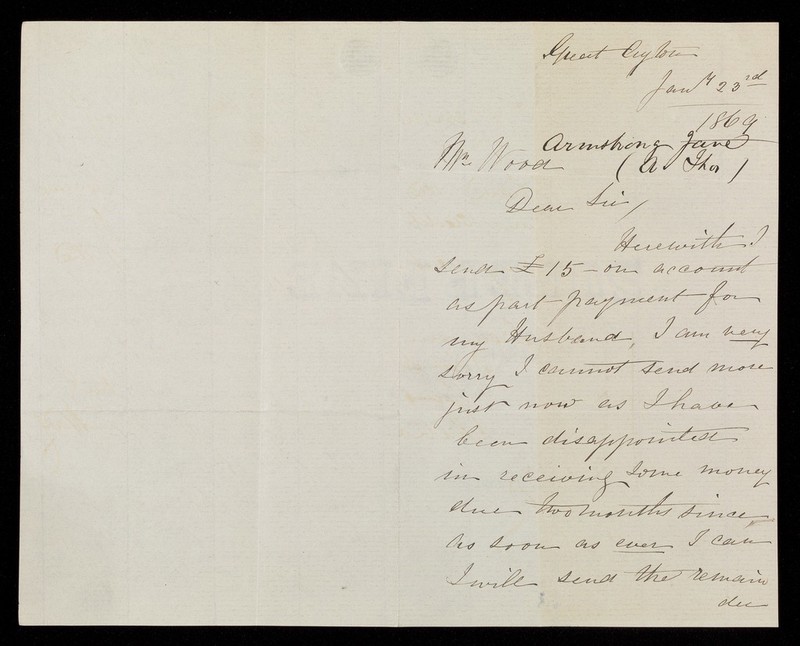 Great Ayton
Jany 23rd
1869
Armstrong Jane
Mr Wood
Dear Sir,
Herewith I
send £15 – on account
as part payment for
my Husband, I am very
sorry I cannot send more
just now as I have
been disappointed
in receiving some money
due two months since
as soon as ever I can
I will send the remain
der